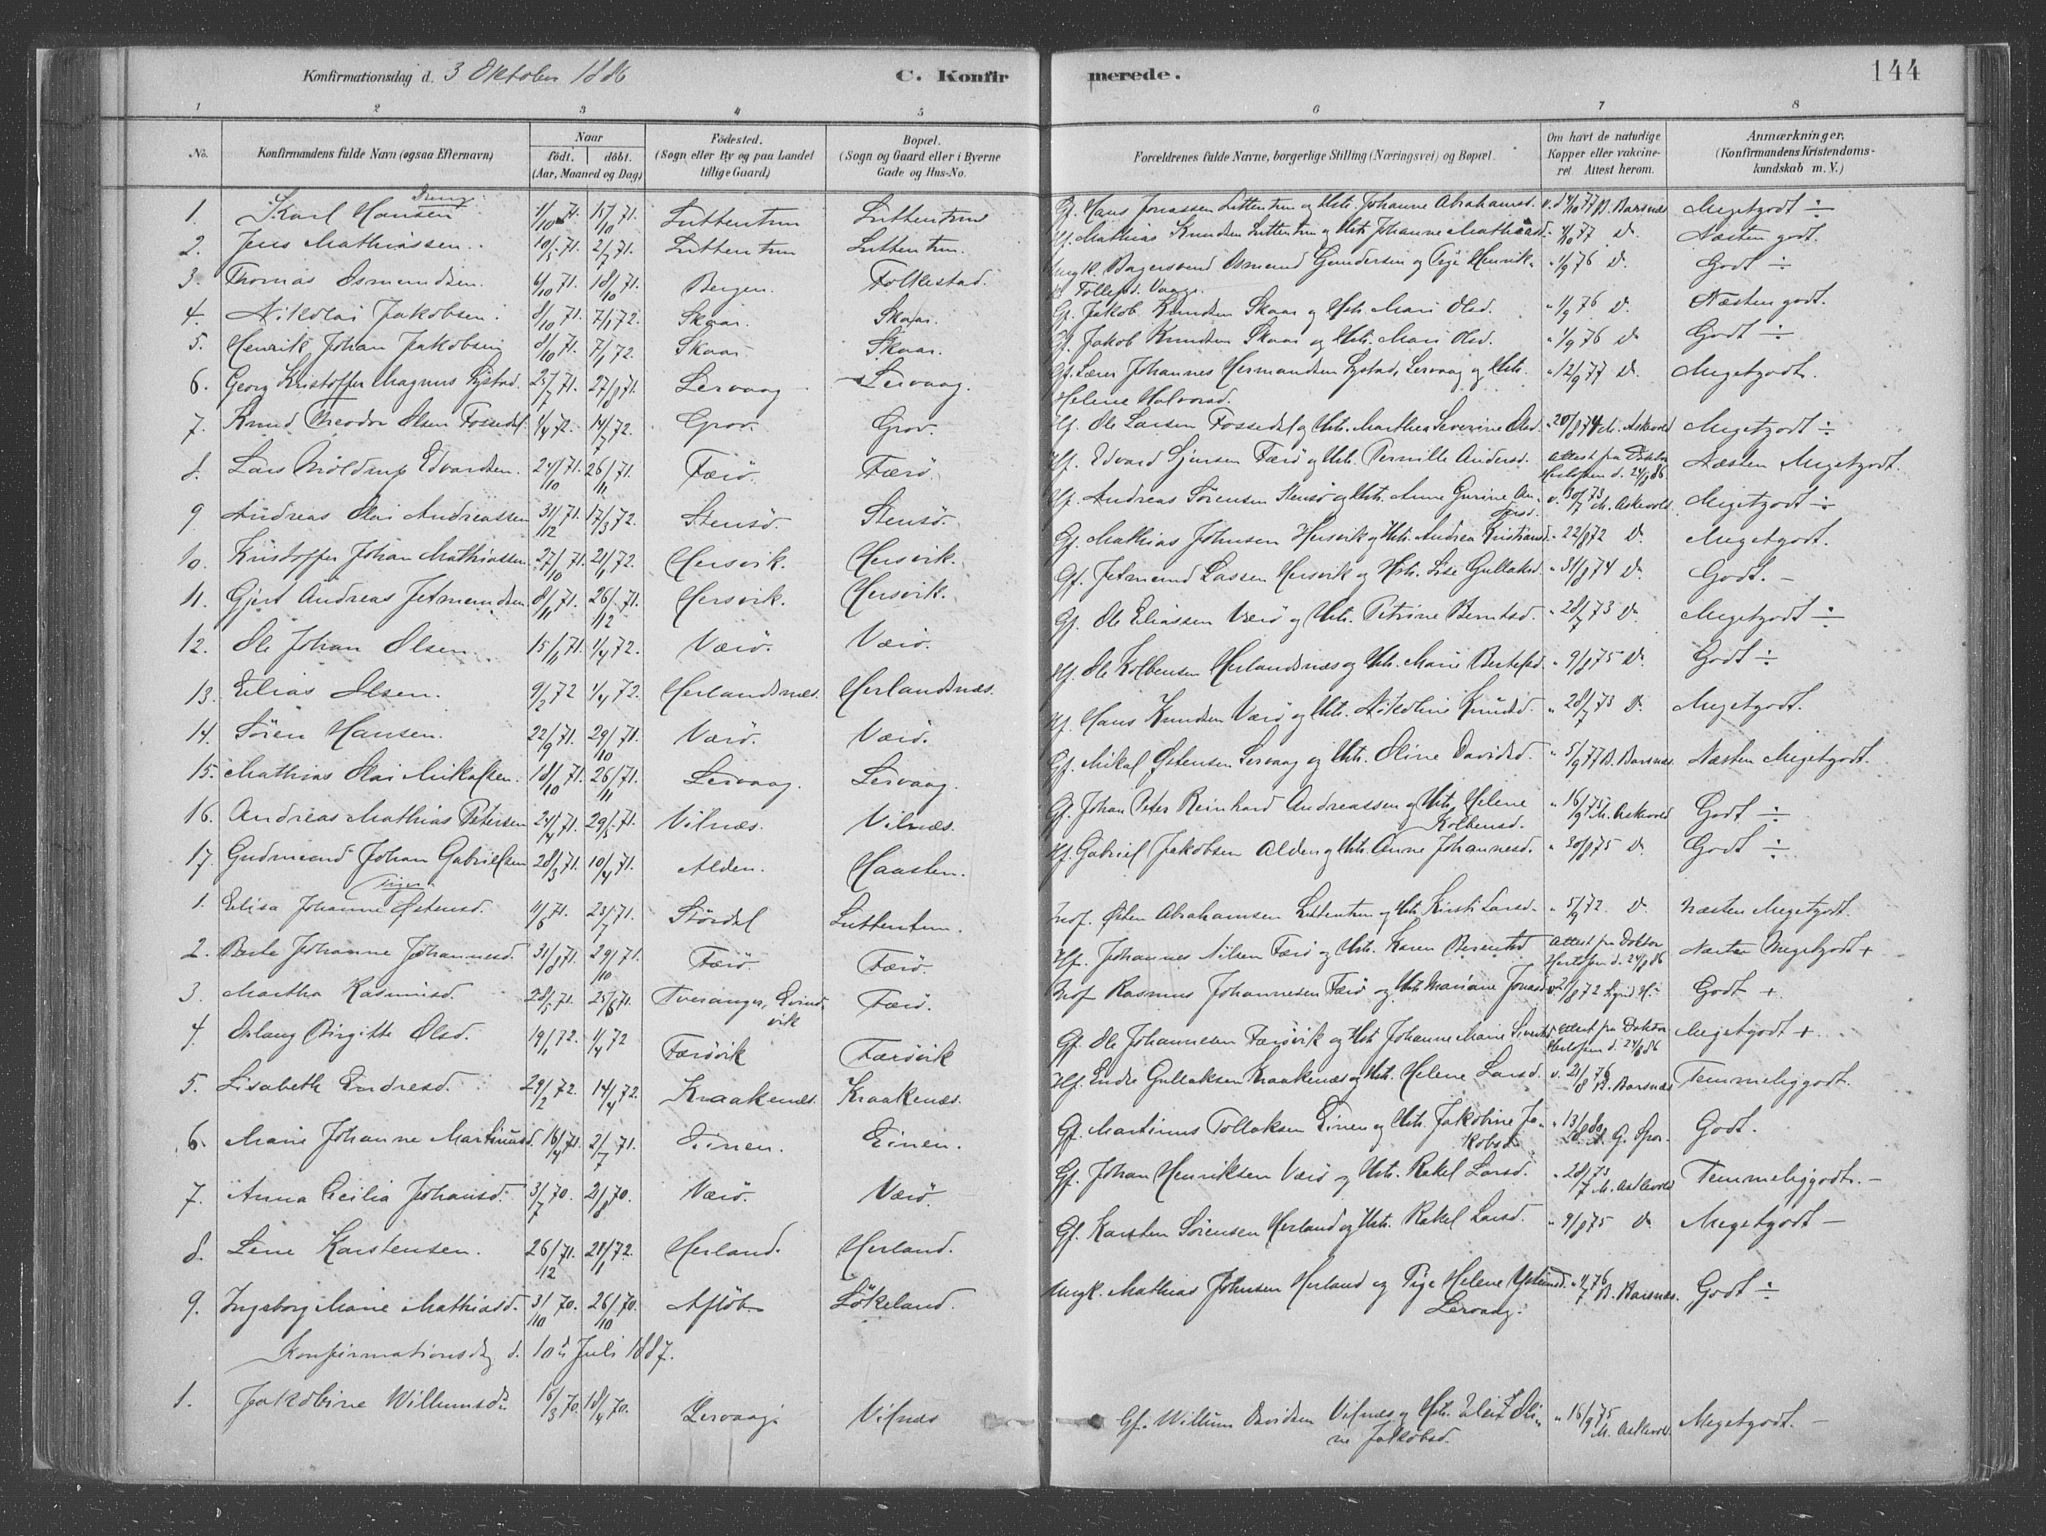 Konfirmationsdag d. 3 Oktober 1886 C. Konfirmerede. 144
1 2 3 4 5 6 7 8
No. Konfirmandens fulde Navn (ogsaa Efternavn) Naar födt. döbt. (Aar, Maaned og Dag) Födested. (Sogn eller By og paa Landet tillige Gaard) Bopæl. (Sogn og Gaard eller i Byerne Gade og Hus-No. Forældrenes fulde Navne, borgerlige Stilling (Næringsvei) og Bopæl. Om havt de naturlige Kopper eller vakcineret Attest herom. Anmærkninger. (Konfirmandens Kristendomskundskab m. V.)
Dreng.
1. Karl Hansen 1/10 71. 15/10 71. Luttentun Luttentun Gf. Hans Jonassen Luttentun og Hst. Johanne Abrahamsd. v. d 4/10 77 B. Barsnæs Megetgodt ÷
2. Jens Mathiassen. 10/5 71. 2/7 71. Luttentun Luttentun. Hf. Mathias Knudsen Luttentun og Hst. Johanne Mathiasd. " 4/10 77 D. Næsten godt.
3. Thomas Osmundsen. 6/10 71. 18/10 71. Bergen. Folkestad. Ungk. Bagersvend Osmund Gundersen og Pige Henrikke Tollefsd. Vaage. " 1/9 76 D. Godt ÷
4. Nikolai Jakobsen. 8/10 71. 7/1 72. Skaar. Skaar. Gf. Jakob Knudsen Skaar og Hst. Mari Olsd. " 1/9 76 D. Næsten godt.
5. Henrik Johan Jakobsen 8/10 71. 7/1 72. Skaar. Skaar. Gf. Jakob Knudsen Skaar og Hst. Mari Olsd. " 1/9 76 D. Godt ÷
6. Georg Kristoffer Magnus Systad. 25/7 71. 27/8 71. Lervaag Lervaag. Gf. Lærer Johannes Hermandsen Systad, Lervaag og Hst. Helene Halvorsd. " 12/9 77 D. Megetgodt.
7. Knud Theodor Olsen Fossedal. 1/4 72. 14/7 72. Grov. Grov. Hf. Ole Larsen Fossedal og Hst. Marthea Severine Olsd. " 20/8 74 M. Askevold Megetgodt ÷
8. Lars Moldrup Edvardsen. 24/10 71. 26/11 71. Færö. Færö. Hf. Edvard Sjursen Færö og Hst. Pernille Andersd. Attest fra Doktor Hertofsen d. 24/9 86 Næsten Megetgodt.
9 Andreas Olai Andreassen 31/12 71. 17/3 72. Stensö. Stensö. Hf. Andreas Sörensen Stensö og Hst. Anne Gurine Andersd. v. 30/7 73 M. Askevold. Megetgodt ÷
10. Kristoffer Johan Mathiassen. 27/10 71. 21/1 72. Hersvik. Hersvik. Gf. Mathias Johnsen Hersvik og Hst. Andrea Kristiansd. " 22/8 72 D. Megetgodt.
11. Gjert Andreas Jetmundsen. 8/11 71. 26/12 71. Hersvik. Hersvik. Gf. Jetmund Lassen Hersvik og Hst. Lise Gullaksd. " 31/8 74 D. Godt. –
12. Ole Johan Olsen. 15/11 71. 1/4 72. Værö. Værö. Gf. Ole Eliassen Værö og Hst. Petrine Berntsd. " 28/7 73 D. Megetgodt ÷
13. Elias Olsen. 9/2 72 1/4 72. Herlandsnæs. Herlandsnæs. Hf. Ole Kolbensen Herlandsnæs og Hst. Marie Bertelsd. " 9/8 75 D. Godt ÷
14. Sören Hansen. 22/9 71. 29/10 71. Værö. Værö. Hf. Hans Knudsen Værö og Hst. Nikoline Knudsd. " 28/7 73 D. Megetgodt.
15. Mathias Olai Mikalsen. 18/10 71. 26/11 71. Lervaag. Lervaag. Gf. Mikal Östensen Lervaag og Hst. Oline Davidsd. " 5/9 77 B. Barsnæs. Næsten Megetgodt.
16. Andreas Mathias Petersen 24/4 71. 29/5 71. Vilnæs. Vilnæs. Gf. Johan Peter Reinhard Andreassen og Hst. Helene Kolbensd. " 16/9 75 M. Askevold Godt ÷
17. Gudmund Johan Gabrielsen 28/3 71. 10/4 71. Alden. Haasten. Hf. Gabriel Jakobsen Alden og Hst. Anne Johannesd. " 30/8 75 D. Godt ÷
Piger
1. Elisa Johanne Östensd. 11/6 71. 23/7 71. Stördal Luttentun. Inds. Östen Abrahamsen Luttentun og Hst. Kirsti Larsd. " 5/9 72 D. Næsten Megetgodt.
2. Berte Johanne Johannesd. 31/8 71. 29/10 71. Færö. Færö. Hf. Johannes Nilsen Færö og Hst. Karen Berentsd. Attest fra Doktor Hertofsen d. 24/9 86 Næsten Megetgodt +
3. Martha Rasmusd. 28/5 71. 25/6 71. Tveranger, Evindvik Færö. Rasmus Johannesen Færö og Hst. Mariane Jonasd. v. 21/8 72 Godt +
4. Aslaug Birgitte Olsd. 19/1 72. 1/4 72 Færövik Færövik Gf. Ole Johannesen Færövik og Hst. Johanne Marie Sivertsd. Attest fra Doktor Hertofsen d. 24/9 86 Megetgodt +
5. Lisabeth Endresd. 29/2 72. 14/4 72. Kraakenæs. Kraakenæs. Hf. Endre Gullaksen Kraakenæs og Hst. Helene Larsd. v. 21/8 76 B. Barsnæs Temmeliggodt.
6. Marie Johanne Martinusd. 16/4 71. 2/7 71. Einen. Einen. Gf. Martinus Tollaksen Einen og Hst. Jakobine Jakobsd. Godt.
7. Anna Cecilia Johansd. 3/7 70. 21/8 70. Værö. Værö. Gf. Johan Henriksen Værö og Hst. Rakel Larsd. " 28/7 73 M. Askevold Temmeliggodt. –
8. Line Karstensen. 26/12 71. 28/1 72. Herland. Herland. Gf. Karsten Sörensen Herland og Hst. Rakel Larsd. " 9/8 75 D. Megetgodt –
9. Ingeborg Marie Mathiasd. 3/10 70. 26/10 70. Aflöb Lökeland. Ungk. Mathias Johnsen Herland og Pige Helene Lervaag. B. Barsnæs. Godt ÷
Konfirmationsdag d. 10 Juli 1887.
1. Jakobine Willumsd. 16/3 70. 18/4 70. Lervaag Vilnæs Gf. Willum Davidsen Vilnæs og Hst. Oline Jakobsd. " 16/9 75 M. Askevold. Megetgodt. –